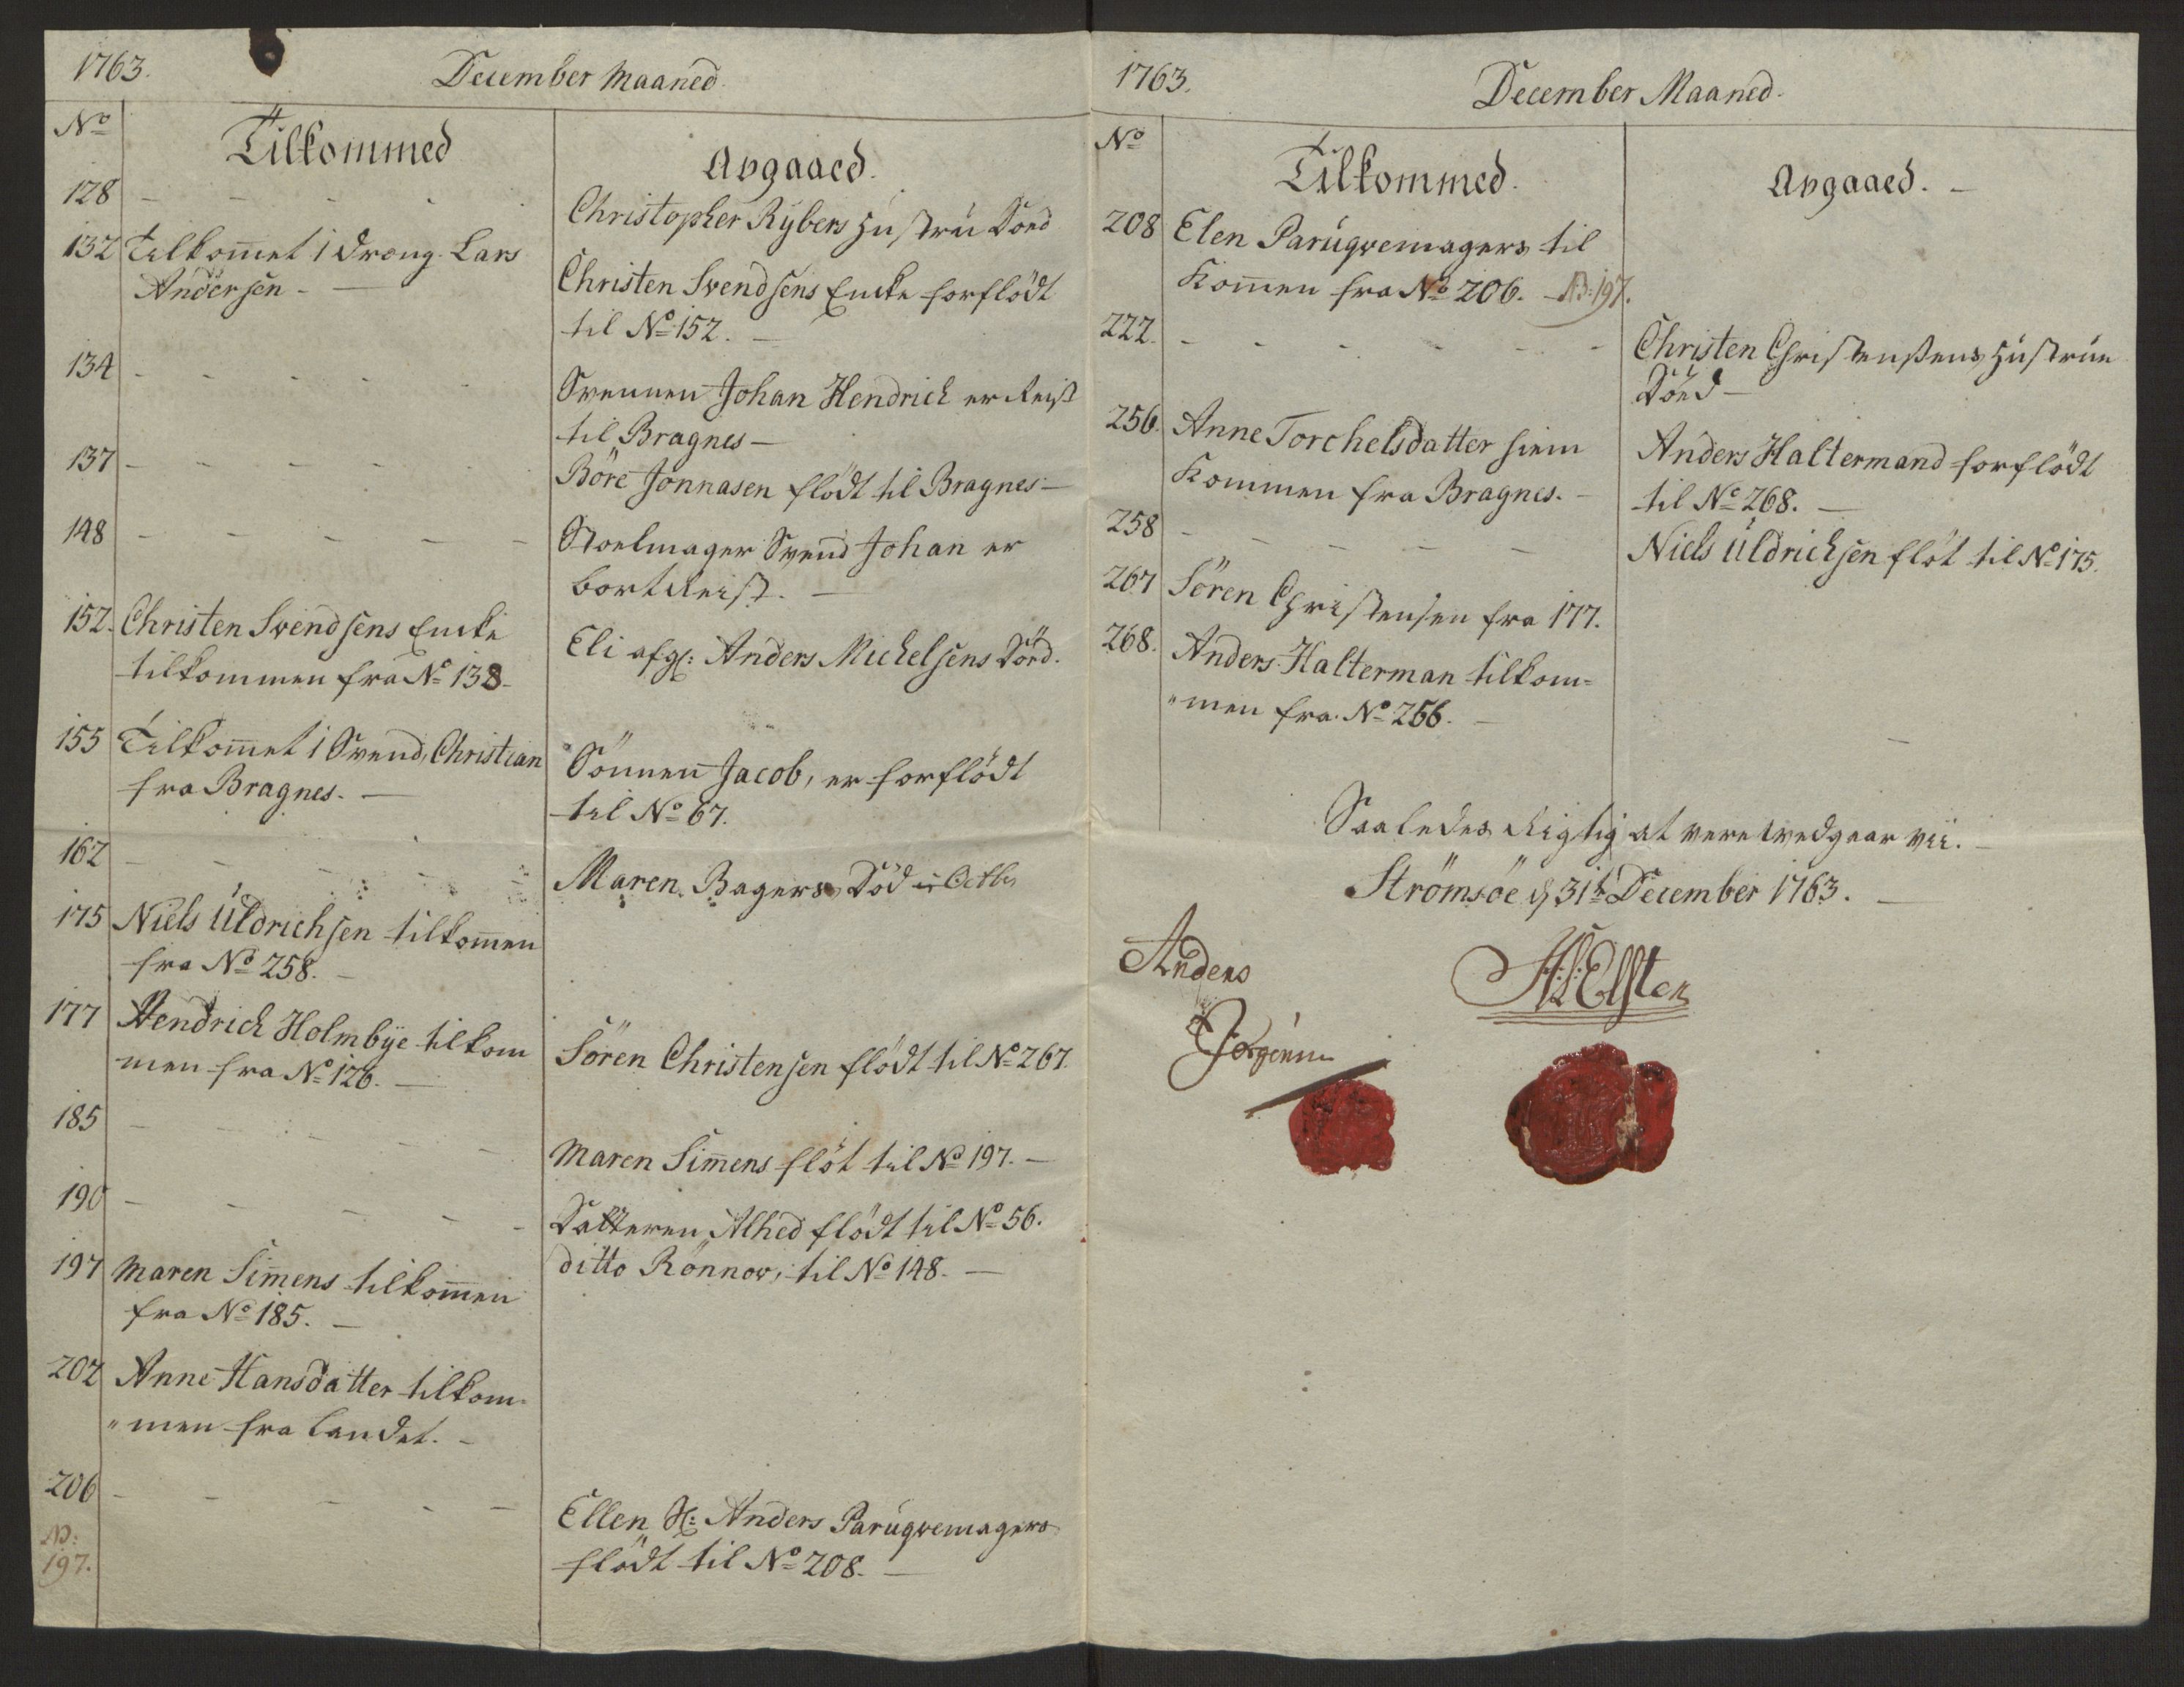 1763.
December Maaned
No
Tilkommed
Avgaaed.
128 - - - -
Christopher Rybers Hustrue Döed
132 Tilkom̅et 1 Dreng. Lars
Andersen -
Christen Svendsens Encke forflödt
til No 152. -
134 - - - - -
Svennen Johan Hendrich er Reist
til Bragnes -
137 - - - - -
Böre Jonnasen flödt til Bragnes -
148 - - - - -
Stoelmager Svend Johan er
bortReist. -
152. Christen Svendsens Encke
tilkommen fra No 138 -
Eli afg: Anders Michelsens Döed.
155 Tilkom̅et 1 Svend, Christian
fra Bragnes. -
Sönnen Jacob, er forflödt
til No 67.
162 - - - - -
Maren Bagers Död in Octbr
175 Niels Uldrichsen tilkom̅en
fra No 258. -
177 Hendrich Holmbye tilkom
men fra No 126. -
Sören Christensen flödt til No 267.
185 - - - - -
Maren Sim̅ens flöt til No 197. -
190 - - - - -
Datteren Alhed flödt til No 56.
ditto Rönnov, til No 148. -
197 Maren Sim̅ens tilkom̅en
fra No 185. -
202 Anne Hansdatter tilkom-
"men fra Landet. -
206 - - - - -
Ellen Sl: Anders Parúqvemagers
flödt til No 208. -
NB:
197.
1763.
December Maaned.
No
Tilkommed.
Avgaaed. -
208 Elen Parúqvemagers til
Kom̅en fra No 206. NB: 197.
222. - - - - -
Christen Christensens Hustrue
Döed -
256. Anne Torchelsdatter hiem
Kommen fra Bragnes. -
Anders Haltermand forflödt
til No 268. -
258 - - - -
Niels Uldrichsen flöt til No 175.
267 Sören Christensen fra 177.
268. Anders Halterman tilkom=
"men fra No 256. -
Saaledes Rigtig at vere tvedgaar vii. -
Strömsöe d 31te December 1763. -
Anders
Jörgensen
Elster